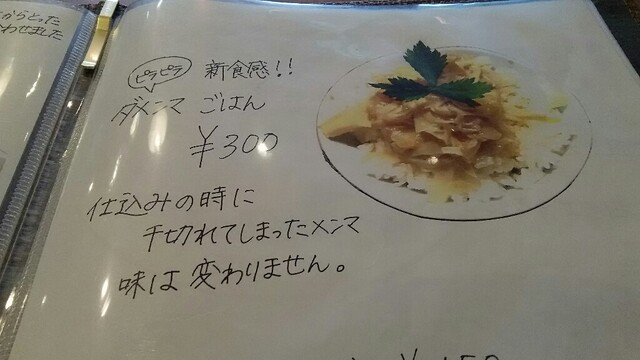 からとった
わせました
ピラピラ 新食感!!
ダメンマ ごはん
¥300
仕込みの時に
千切れてしまったメンマ
味は変わりません。